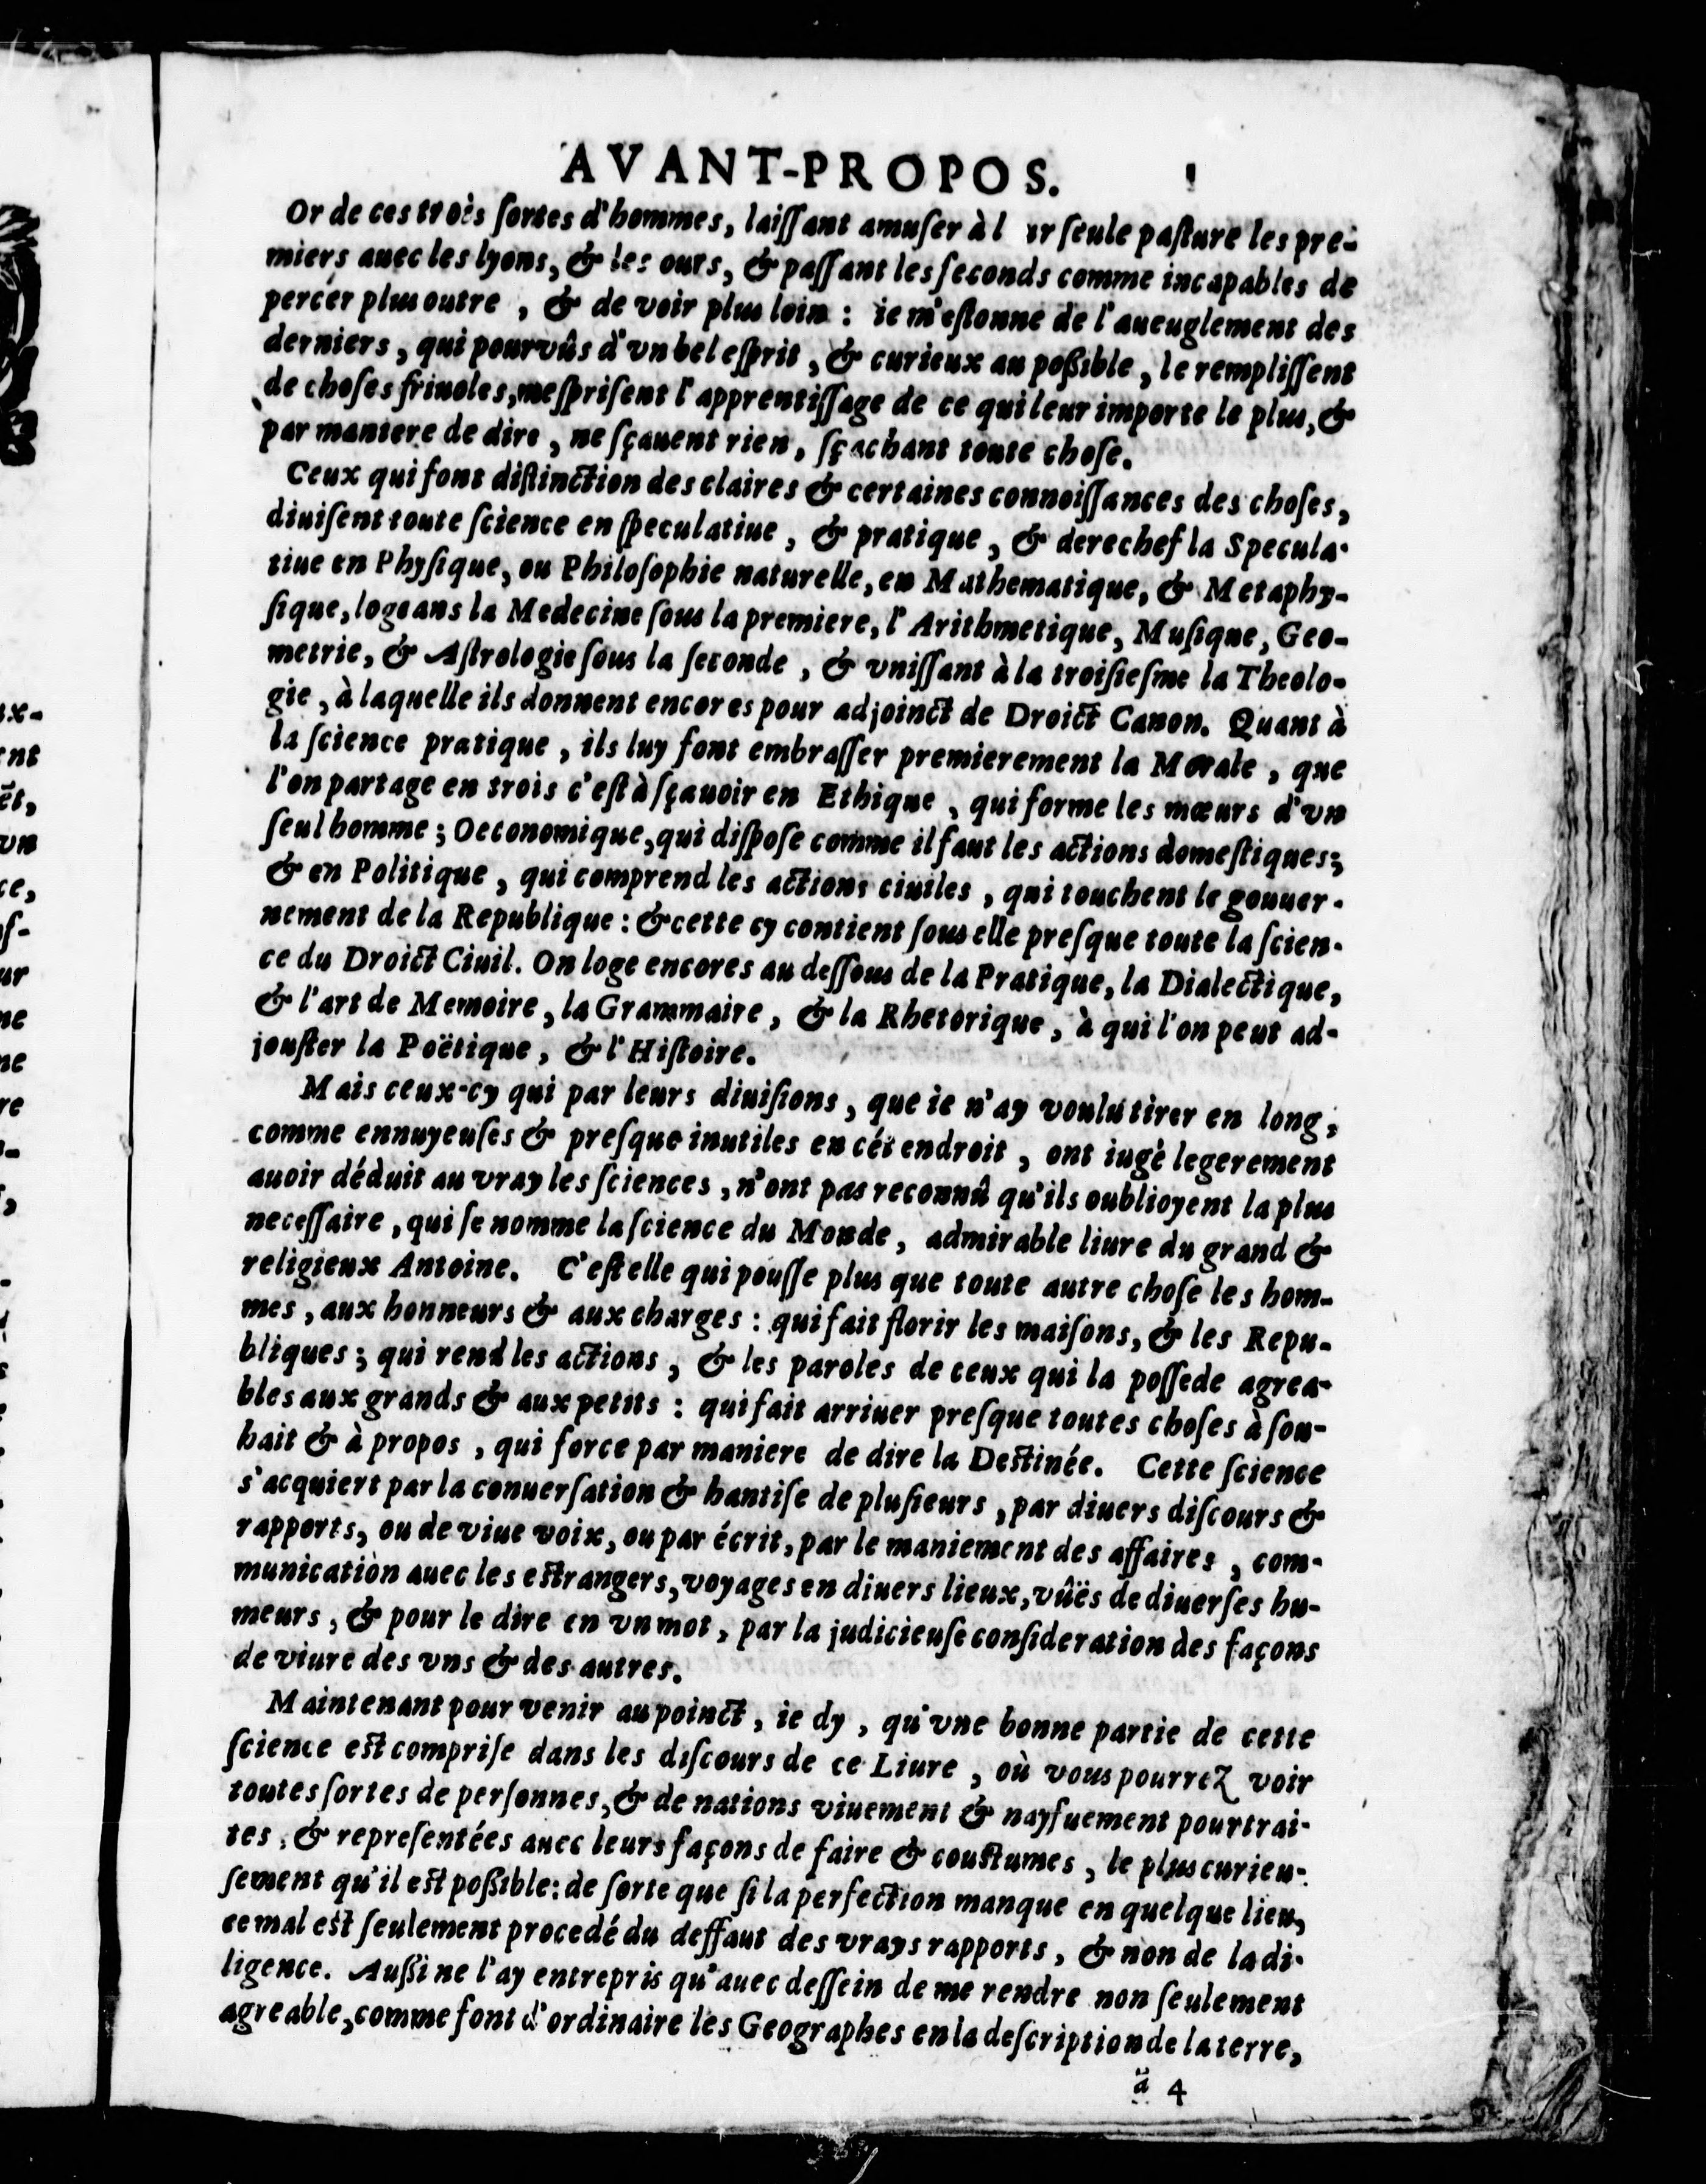 AVANT-PROPOS.
Or de ces trois ſortes d'hommes, laiſſant amuſer à l ur ſeule paſture les pre-
miers auec les lyons, & les ours, & paſſant les ſeconds comme incapables de
percér plus outre , & de voir plus loin : ie m'eſtonne de l'aueuglement des
derniers , qui pourvûs d'vn bel eſprit , & curieux au poßible , le rempliſſent
de choſes friuoles, meſpriſent l'apprentiſſage de ce qui leur importe le plus, &
par maniere de dire , ne ſçauent rien , ſçachant toute choſe.
Ceux qui font diſtinction des claires & certaines connoiſſances des choſes,
diuiſent toute ſcience en ſpeculatiue , & pratique , & derechef la Specula-
tiue en Phyſique, ou Philoſophie naturelle, en Mathematique, & Metaphy-
ſique, logeans la Medecine ſous la premiere, l'Arithmetique, Muſique, Geo-
metrie, & Aſtrologie ſous la ſeconde , & vniſſant à la troiſieſme la Theolo-
gie , à laquelle ils donnent encores pour adjoinct de Droict Canon. Quant à
la ſcience pratique , ils luy font embraſſer premierement la Morale , que
l'on partage en trois c'eſt à ſçauoir en Ethique , qui forme les mœurs d'vn
ſeul homme ; Oeconomique, qui diſpoſe comme il faut les actions domeſtiques;
& en Politique , qui comprend les actions ciuiles , qui touchent le gouuer-
nement de la Republique : & cette cy contient ſous elle preſque toute la ſcien-
ce du Droict Ciuil. On loge encores au deſſous de la Pratique, la Dialectique,
& l'art de Memoire , la Grammaire , & la Rhetorique , à qui l'on peut ad-
jouſter la Poëtique , & l'Hiſtoire.
Mais ceux-cy qui par leurs diuiſions , que ie n'ay voulu tirer en long ,
comme ennuyeuſes & preſque inutiles en cét endroit , ont iugé legerement
auoir déduit au vray les ſciences , n'ont pas reconnû qu'ils oublioyent la plus
neceſſaire , qui ſe nomme la ſcience du Monde , admirable liure du grand &
religieux Antoine. C'eſt elle qui pouſſe plus que toute autre choſe les hom-
mes , aux honneurs & aux charges : qui fait florir les maiſons, & les Repu-
bliques ; qui rend les actions , & les paroles de ceux qui la poſſede agrea-
bles aux grands & aux petits : qui fait arriuer preſque toutes choſes à ſou-
hait & à propos , qui force par maniere de dire la Deſtinée. Cette ſcience
s'acquiert par la conuerſation & hantiſe de pluſieurs , par diuers diſcours &
rapports, ou de viue voix, ou par écrit, par le maniement des affaires , com-
munication auec les eſtrangers, voyages en diuers lieux, vûës de diuerſes hu-
meurs , & pour le dire en vn mot , par la judicieuſe conſideration des façons
de viure des vns & des autres.
Maintenant pour venir au poinct , ie dy , qu'vne bonne partie de cette
ſcience eſt compriſe dans les diſcours de ce Liure , où vous pourrez voir
toutes ſortes de perſonnes, & de nations viuement & nayfuement pourtrai-
tes , & repreſentées auec leurs façons de faire & couſtumes , le plus curieu-
ſement qu'il eſt poßible : de ſorte que ſi la perfection manque en quelque lieu,
ce mal eſt ſeulement procedé du deffaut des vrays rapports , & non de la di-
ligence. Außi ne l'ay entrepris qu'auec deſſein de me rendre non ſeulement
agreable, comme font d'ordinaire les Geographes en la deſcription de la terre,
ã 4